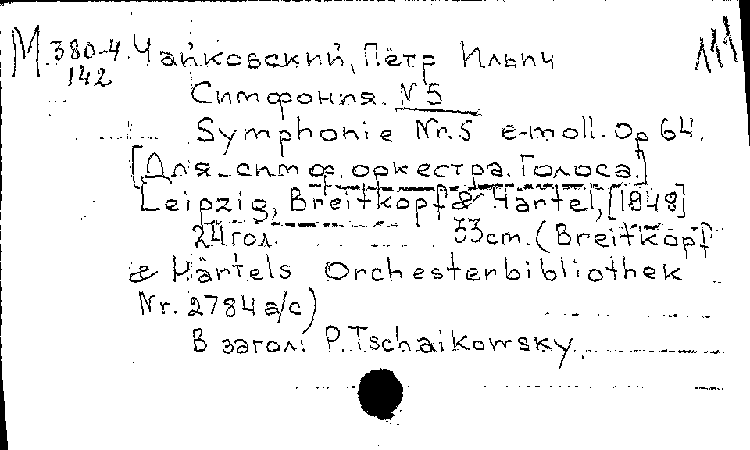 М.380-4. Чайковский, Пётр Ильич 111
142
Симфония. N 5
Symphonie Nr.5 e-moll. Op 64.
[Для симф. оркестра. Голоса.]
Leipzig, Breitkopf & Härtel, [1948]
24 гол. 33cm. (Breitkopf
& Härtels Orchesterbibliothek
Nr. 2784 a/c)
В загол: P. Tschaikowsky.